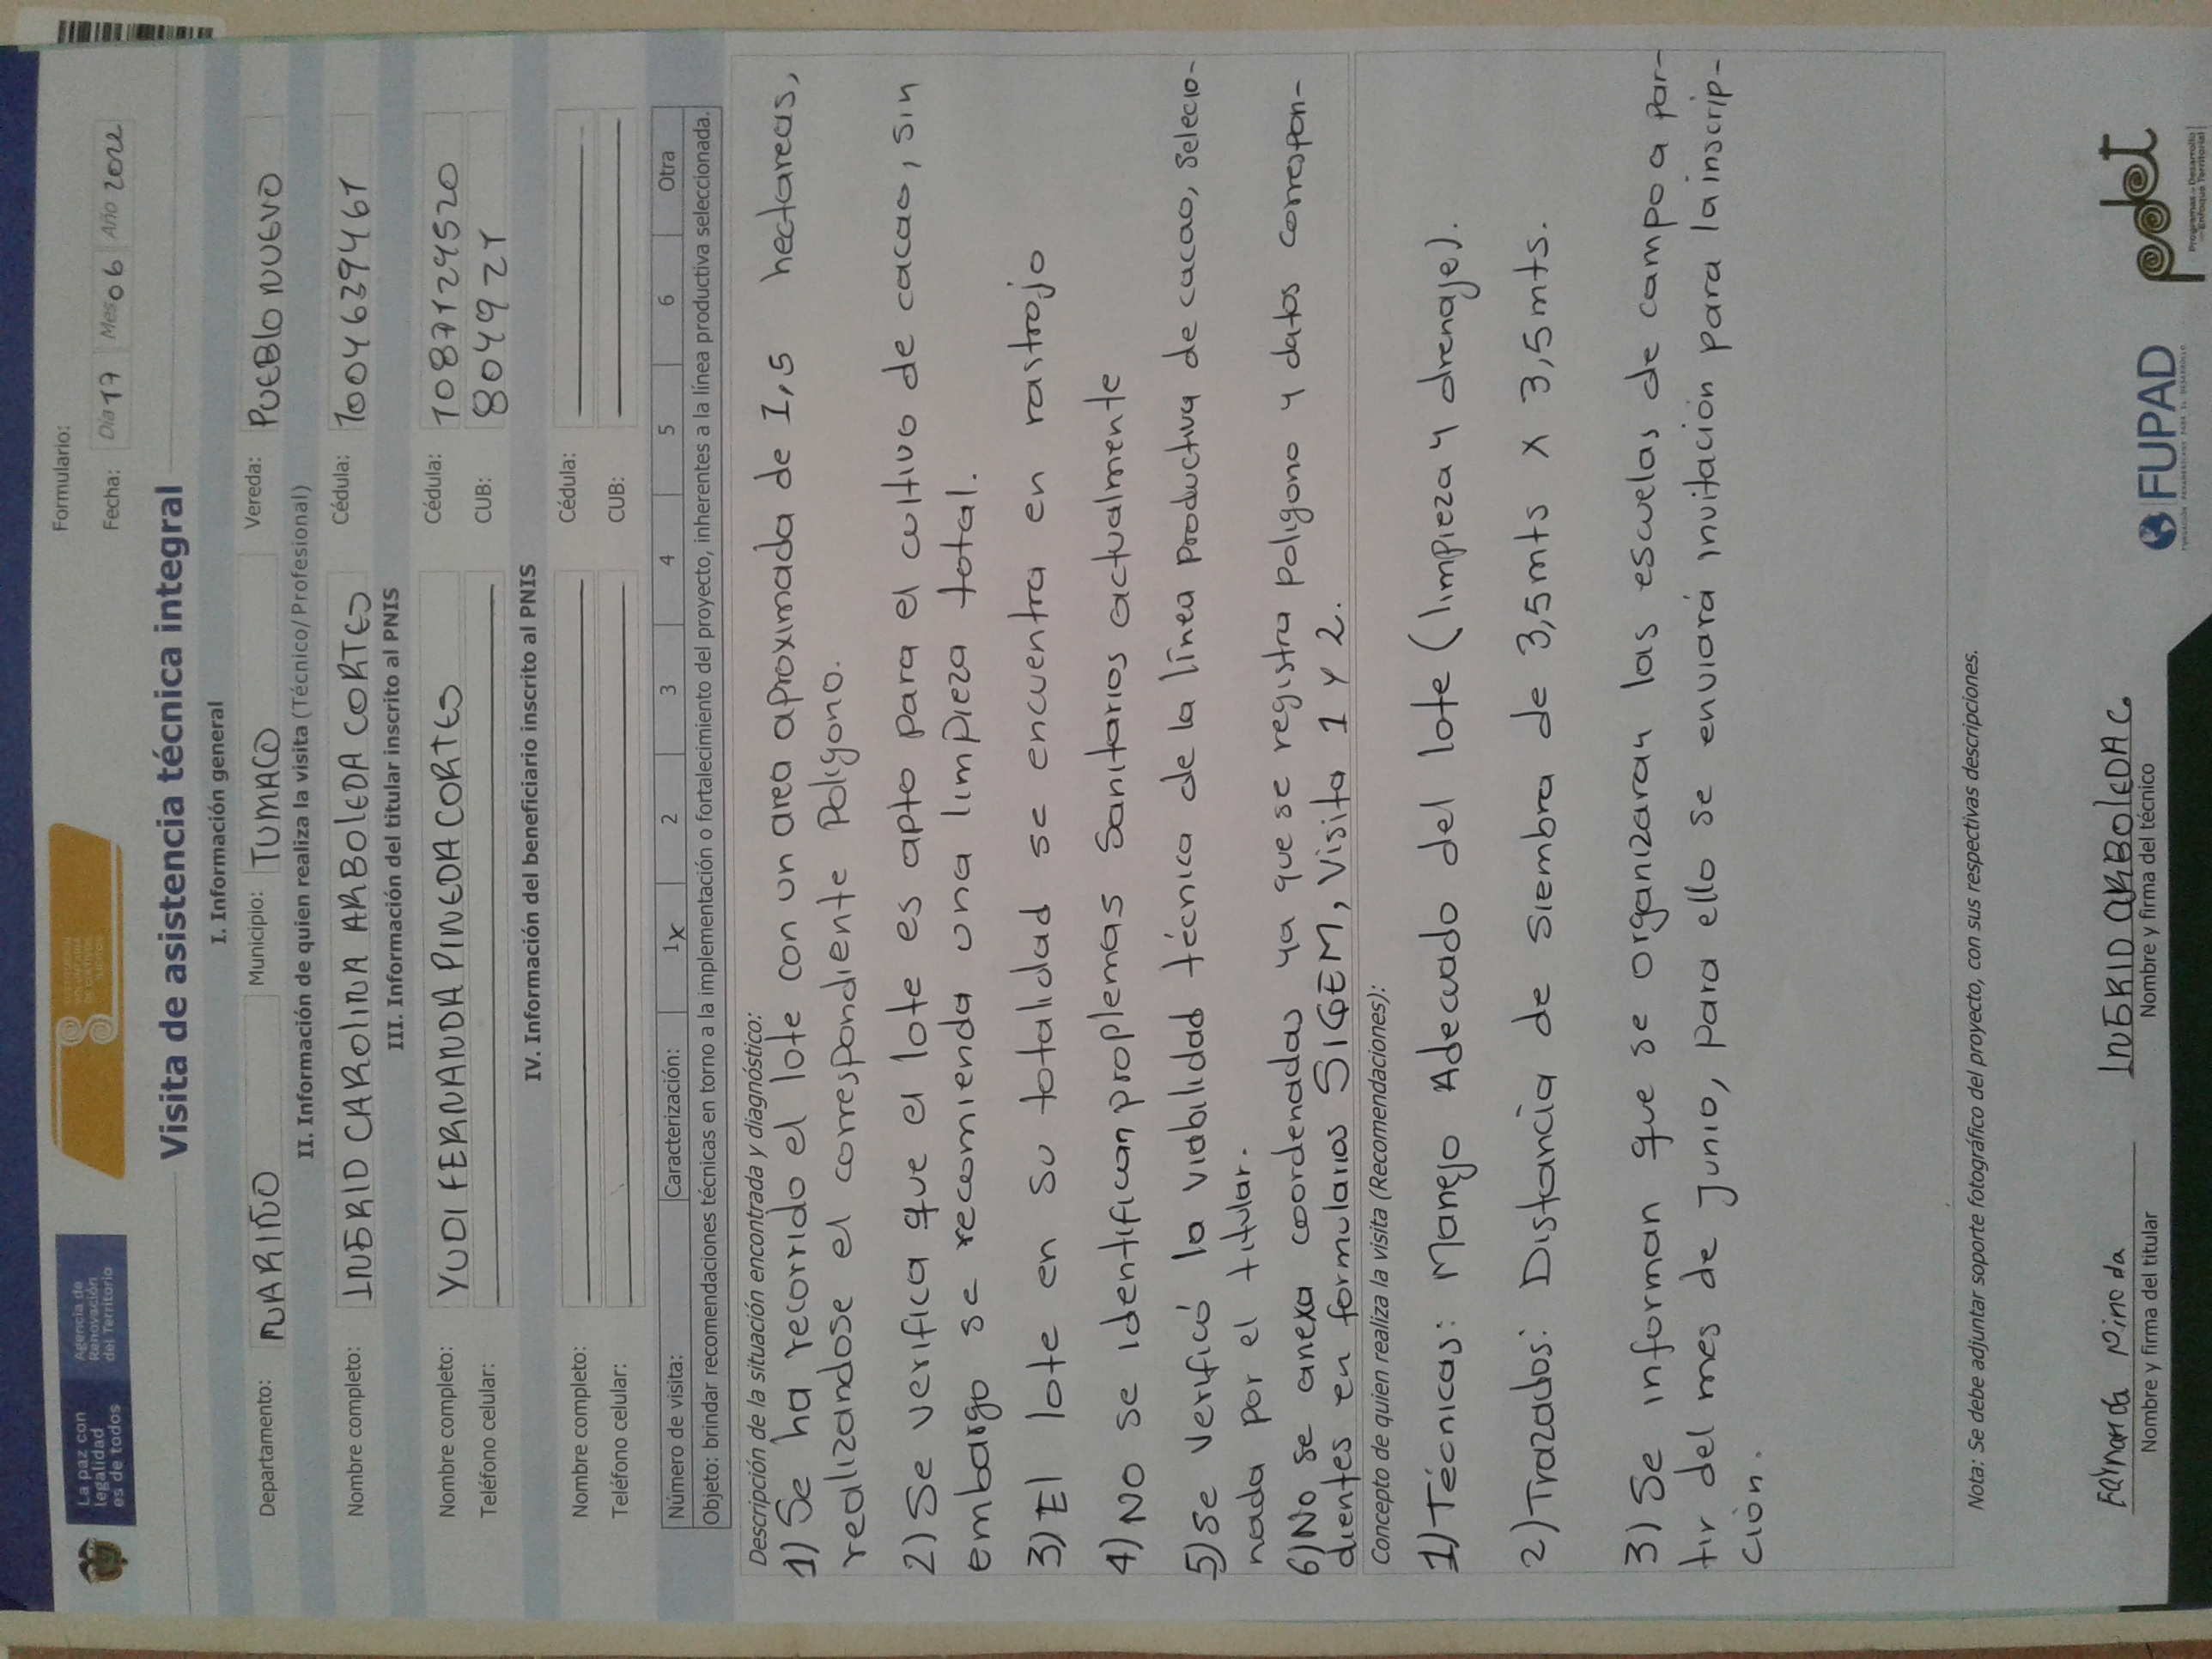 La paz con
legalidad
es de todos
Agencia de
Renovación
del Territorio
SUSTITUCIÓN
VOLUNTARIA
DE CULTIVOS
ILÍCITOS
Formulario:
Fecha: Día 17 Mes 06 Año 2022
Visita de asistencia técnica integral
I. Información general
Departamento: NARIÑO Municipio: TUMACO Vereda: PUEBLO NUEVO
II. Información de quien realiza la visita (Técnico/ Profesional)
Nombre completo: INGRID CAROLINA ARBOLEDA CORTES Cédula: 1004629461
III. Información del titular inscrito al PNIS
Nombre completo: YUDI FERNANDA PINEDA CORTES Cédula: 1087124520
Teléfono celular: CUB: 804921
IV. Información del beneficiario inscrito al PNIS
Nombre completo: Cédula:
Teléfono celular: CUB:
Número de visita: Caracterización: 1 x 2 3 4 5 6 Otra
Objeto: brindar recomendaciones técnicas en torno a la implementación o fortalecimiento del proyecto, inherentes a la línea productiva seleccionada.
Descripción de la situación encontrada y diagnóstico:
1) Se ha recorrido el lote con un area aproximada de 1,5 hectareas,
realizandose el correspondiente Poligono.
2) Se verifica que el lote es apto para el cultivo de cacao, sin
embargo se recomienda una limpieza total.
3) El lote en su totalidad se encuentra en rastrojo
4) No se identifican proplemas Sanitarios actualmente
5) Se verificó la viabilidad técnica de la línea productiva de cacao, selecio-
nada por el titular.
6) No se anexa coordenadas ya que se registra poligono y datos correspon-
dientes en formularios SIGEM, Visita 1 y 2.
Concepto de quien realiza la visita (Recomendaciones):
1) Técnicas: Manejo Adecuado del lote (limpieza y drenaje).
2) Trazados: Distancia de siembra de 3,5 mts x 3,5 mts.
3) Se informan que se organizaran las escuelas de campo a par-
tir del mes de junio, para ello se enviará invitación para la inscrip-
ción.
Nota: Se debe adjuntar soporte fotográfico del proyecto, con sus respectivas descripciones.
INGRID ARBOLEDA C.
Nombre y firma del titular
Nombre y firma del técnico
FUPAD
FUNDACIÓN PANAMERICANA PARA EL DESARROLLO
pdet
Programas de Desarrollo
con Enfoque Territorial